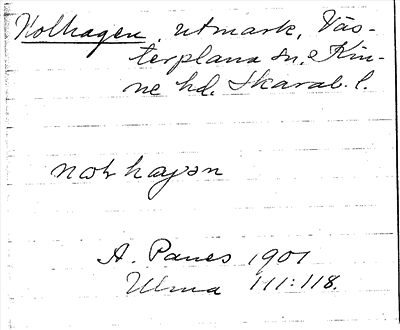 Kolhagen, utmark, Väs-
terplana sn. Kin-
ne hd. Skarab. l.
hagən
A. Panes 1901
Ulma 111:118.